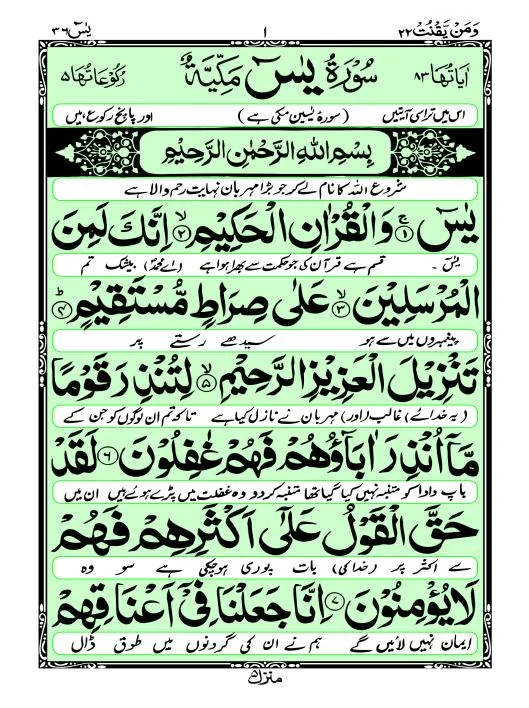 وَمَنْ يَّقْنُتْ ٢٢ ١ يٰسٓ ٣٦
اٰيَاتُهَا ٨٣ سُوْرَةُ يٰسٓ مَكِّيَّةٌ رُكُوْعَاتُهَا ٥
اس میں تراسی آیتیں (سورۂ یٰسین مکی ہے) اور پانچ رکوع ہیں
بِسْمِ اللّٰهِ الرَّحْمٰنِ الرَّحِيْمِ
شروع اللہ کا نام لے کر جو بڑا مہربان نہایت رحم والا ہے
يٰسٓ ۚ﴿١﴾ وَالْقُرْاٰنِ الْحَكِيْمِ ۙ﴿٢﴾ اِنَّكَ لَمِنَ
یٰسٓ ۔ قسم ہے قرآن کی جو حکمت سے بھرا ہوا ہے (اے محمدؐ) بیشک تم
الْمُرْسَلِيْنَ ۙ﴿٣﴾ عَلٰى صِرَاطٍ مُّسْتَقِيْمٍ ؕ﴿٤﴾
پیغمبروں میں سے ہو سیدھے رستے پر
تَنْزِيْلَ الْعَزِيْزِ الرَّحِيْمِ ۙ﴿٥﴾ لِتُنْذِرَ قَوْمًا
(یہ خدائے) غالب (اور) مہربان نے نازل کیا ہے تاکہ تم ان لوگوں کو جن کے
مَّاۤ اُنْذِرَ اٰبَآؤُهُمْ فَهُمْ غٰفِلُوْنَ ﴿٦﴾ لَقَدْ
باپ دادا کو متنبہ نہیں کیا گیا تھا متنبہ کر دو وہ غفلت میں پڑے ہوئے ہیں ان میں
حَقَّ الْقَوْلُ عَلٰٓى اَكْثَرِهِمْ فَهُمْ
سے اکثر پر (خدا کی) بات پوری ہو چکی ہے سو وہ
لَا يُؤْمِنُوْنَ ﴿٧﴾ اِنَّا جَعَلْنَا فِيْۤ اَعْنَاقِهِمْ
ایمان نہیں لائیں گے ہم نے ان کی گردنوں میں طوق ڈال
منزل ٥